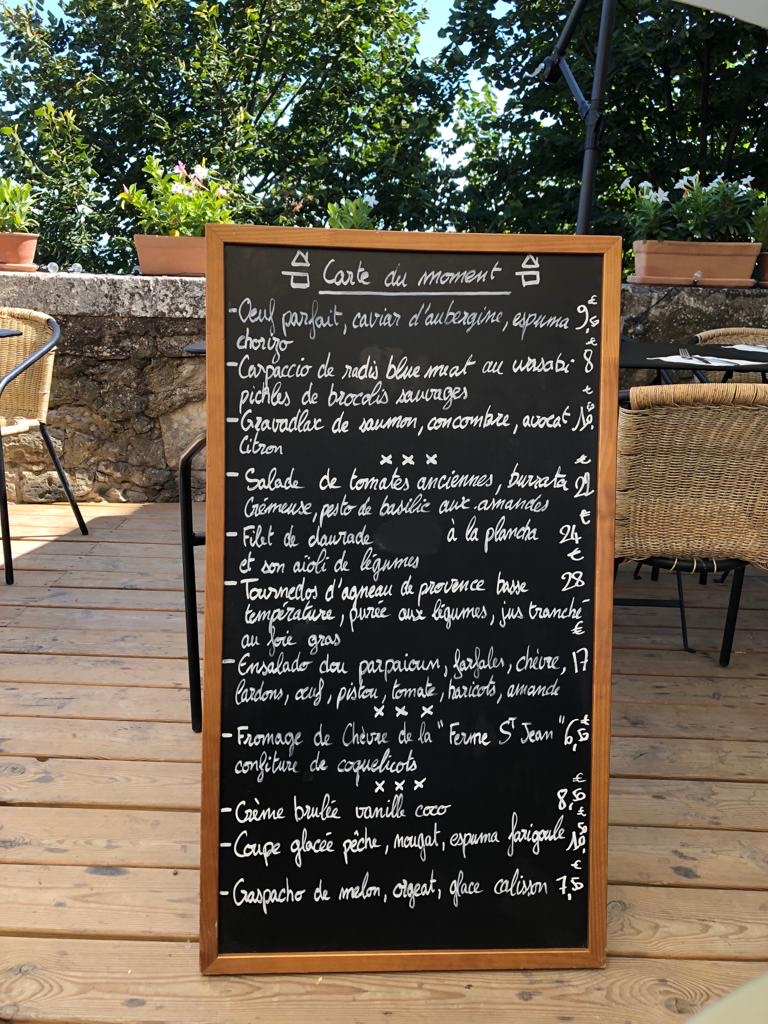 Carte du moment
- Oeuf parfait, caviar d'aubergine, espuma 9,50 €
chorizo
- Carpaccio de radis blue meat au wasabi 8 €
pickles de brocolis sauvages
- Gravadlax de saumon, concombre, avocat €
Citron
x x x
- Salade de tomates anciennes, burrata 21 €
Crémeuse, pesto de basilic aux amandes
- Filet de daurade à la plancha 24 €
et son aïoli de légumes
- Tournedos d'agneau de provence basse 28 €
température, purée aux légumes, jus tranché
au foie gras
- Ensalado dou parpaioun, farfales, chèvre, 17 €
lardons, œuf, pistou, tomate, haricots, amande
x x x
- Fromage de Chèvre de la "Ferme St Jean" 6,50 €
confiture de coquelicots
x x x
- Crème brulée vanille coco 8,50 €
- Coupe glacée pêche, nougat, espuma farigoule 10,50 €
- Gaspacho de melon, orgeat, glace calisson 7,50 €